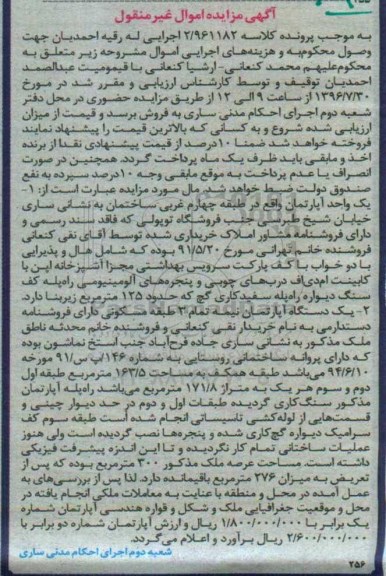 آگهی مزایده اموال غیرمنقول
به موجب پرونده کلاسه ۲/۹۶۱۱۸۲ اجرایی له رقیه احمدیان جهت
وصول محکوم‌به و هزینه‌های اجرایی اموال مشروحه زیر متعلق به
محکوم‌علیهم محمد کنعانی - ارشیا کنعانی با قیمومیت عبدالصمد
احمدیان توقیف و توسط کارشناس ارزیابی و مقرر شد در مورخ
۱۳۹۶/۷/۳۰ از ساعت ۹ الی ۱۲ از طریق مزایده حضوری در محل دفتر
شعبه دوم اجرای احکام مدنی ساری به فروش برسد و قیمت از میزان
ارزیابی شده شروع و به کسانی که بالاترین قیمت را پیشنهاد نمایند
فروخته خواهد شد ضمنا ۱۰درصد از قیمت پیشنهادی نقدا از برنده
اخذ و مابقی باید ظرف یک ماه پرداخت گردد. همچنین در صورت
انصراف یا عدم پرداخت به موقع مابقی وجه ۱۰درصد سپرده به نفع
صندوق دولت ضبط خواهد شد. مال مورد مزایده عبارت است از: ۱-
یک واحد آپارتمان واقع در طبقه چهارم غربی ساختمان به نشانی ساری
خیابان شیخ طبرسی جنب فروشگاه توپولی که فاقد سند رسمی و
دارای فروشنامه مشاور املاک خریداری شده توسط آقای نقی کنعانی
فروشنده خانم تهرانی مورخ ۹۱/۵/۳۰ بوده که شامل هال و پذیرایی
با دو خواب با کف پارکت سرویس بهداشتی مجزا آشپزخانه اپن با
کابینت ام‌دی‌اف درب‌های چوبی و پنجره‌های آلومینیومی راه‌پله کف
سنگ دیواره راه‌پله سفیدکاری گچ که حدود ۱۲۵ مترمربع زیربنا دارد.
۲- یک دستگاه آپارتمان نیمه تمام ۳ طبقه مسکونی دارای فروشنامه
دستدارمی به نام خریدار نقی کنعانی و فروشنده خانم محدثه ناطق
ملک مذکور به نشانی ساری جاده فرح‌آباد جنب استخ نماشون بوده
که دارای پروانه ساختمانی روستایی به شماره ۱۴۶/پ س/۹۱ مورخه
۹۴/۶/۱۰ می‌باشد طبقه همکف به مساحت ۱۶۳/۵ مترمربع طبقه اول
دوم و سوم هر یک به متراژ ۱۷۱/۸ مترمربع می‌باشد. راه‌پله آپارتمان
مذکور سنگ‌کاری گردیده طبقات اول و دوم در حد دیوار چینی و
قسمت‌هایی از لوله‌کشی تاسیساتی انجام شده است طبقه سوم کف
سرامیک دیواره گچ‌کاری شده و پنجره‌ها نصب گردیده است ولی هنوز
عملیات ساختمانی تمام کار نگردیده و تا این اندزه پیشرفت فیزیکی
داشته است. مساحت عرصه ملک مذکور ۳۰۰ مترمربع بوده که پس از
تعریض به میزان ۲۷۶ مترمربع باقیمانده دارد. لذا پس از بررسی‌های به
عمل آمده در محل و منطقه با عنایت به معاملات ملکی انجام یافته در
محل و موقعیت جغرافیایی ملک و شکل و قواره هندسی آپارتمان شماره
یک برابر با ۱/۸۰۰/۰۰۰/۰۰۰ ریال و ارزش آپارتمان شماره دو برابر با
۲/۶۰۰/۰۰۰/۰۰۰ ریال برآورد و اعلام می‌گردد.
شعبه دوم اجرای احکام مدنی ساری
۲۵۶